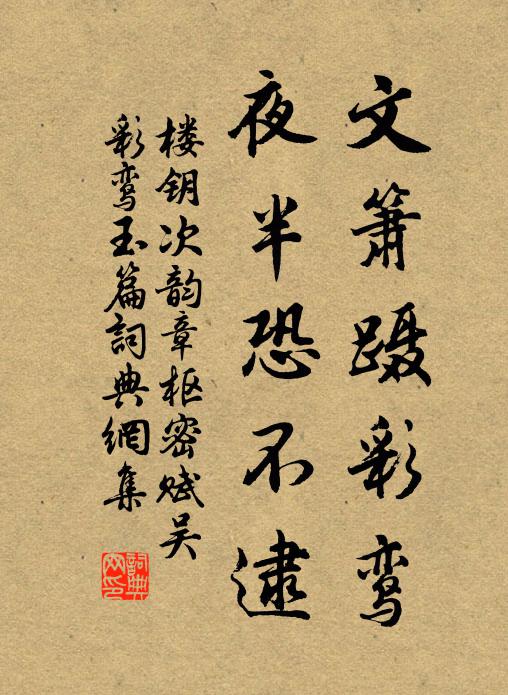 文箫蹑彩鸾
夜半恐不逮
楼钥次韵章枢密赋吴
彩鸾玉篇詞典網集
詞典
网印